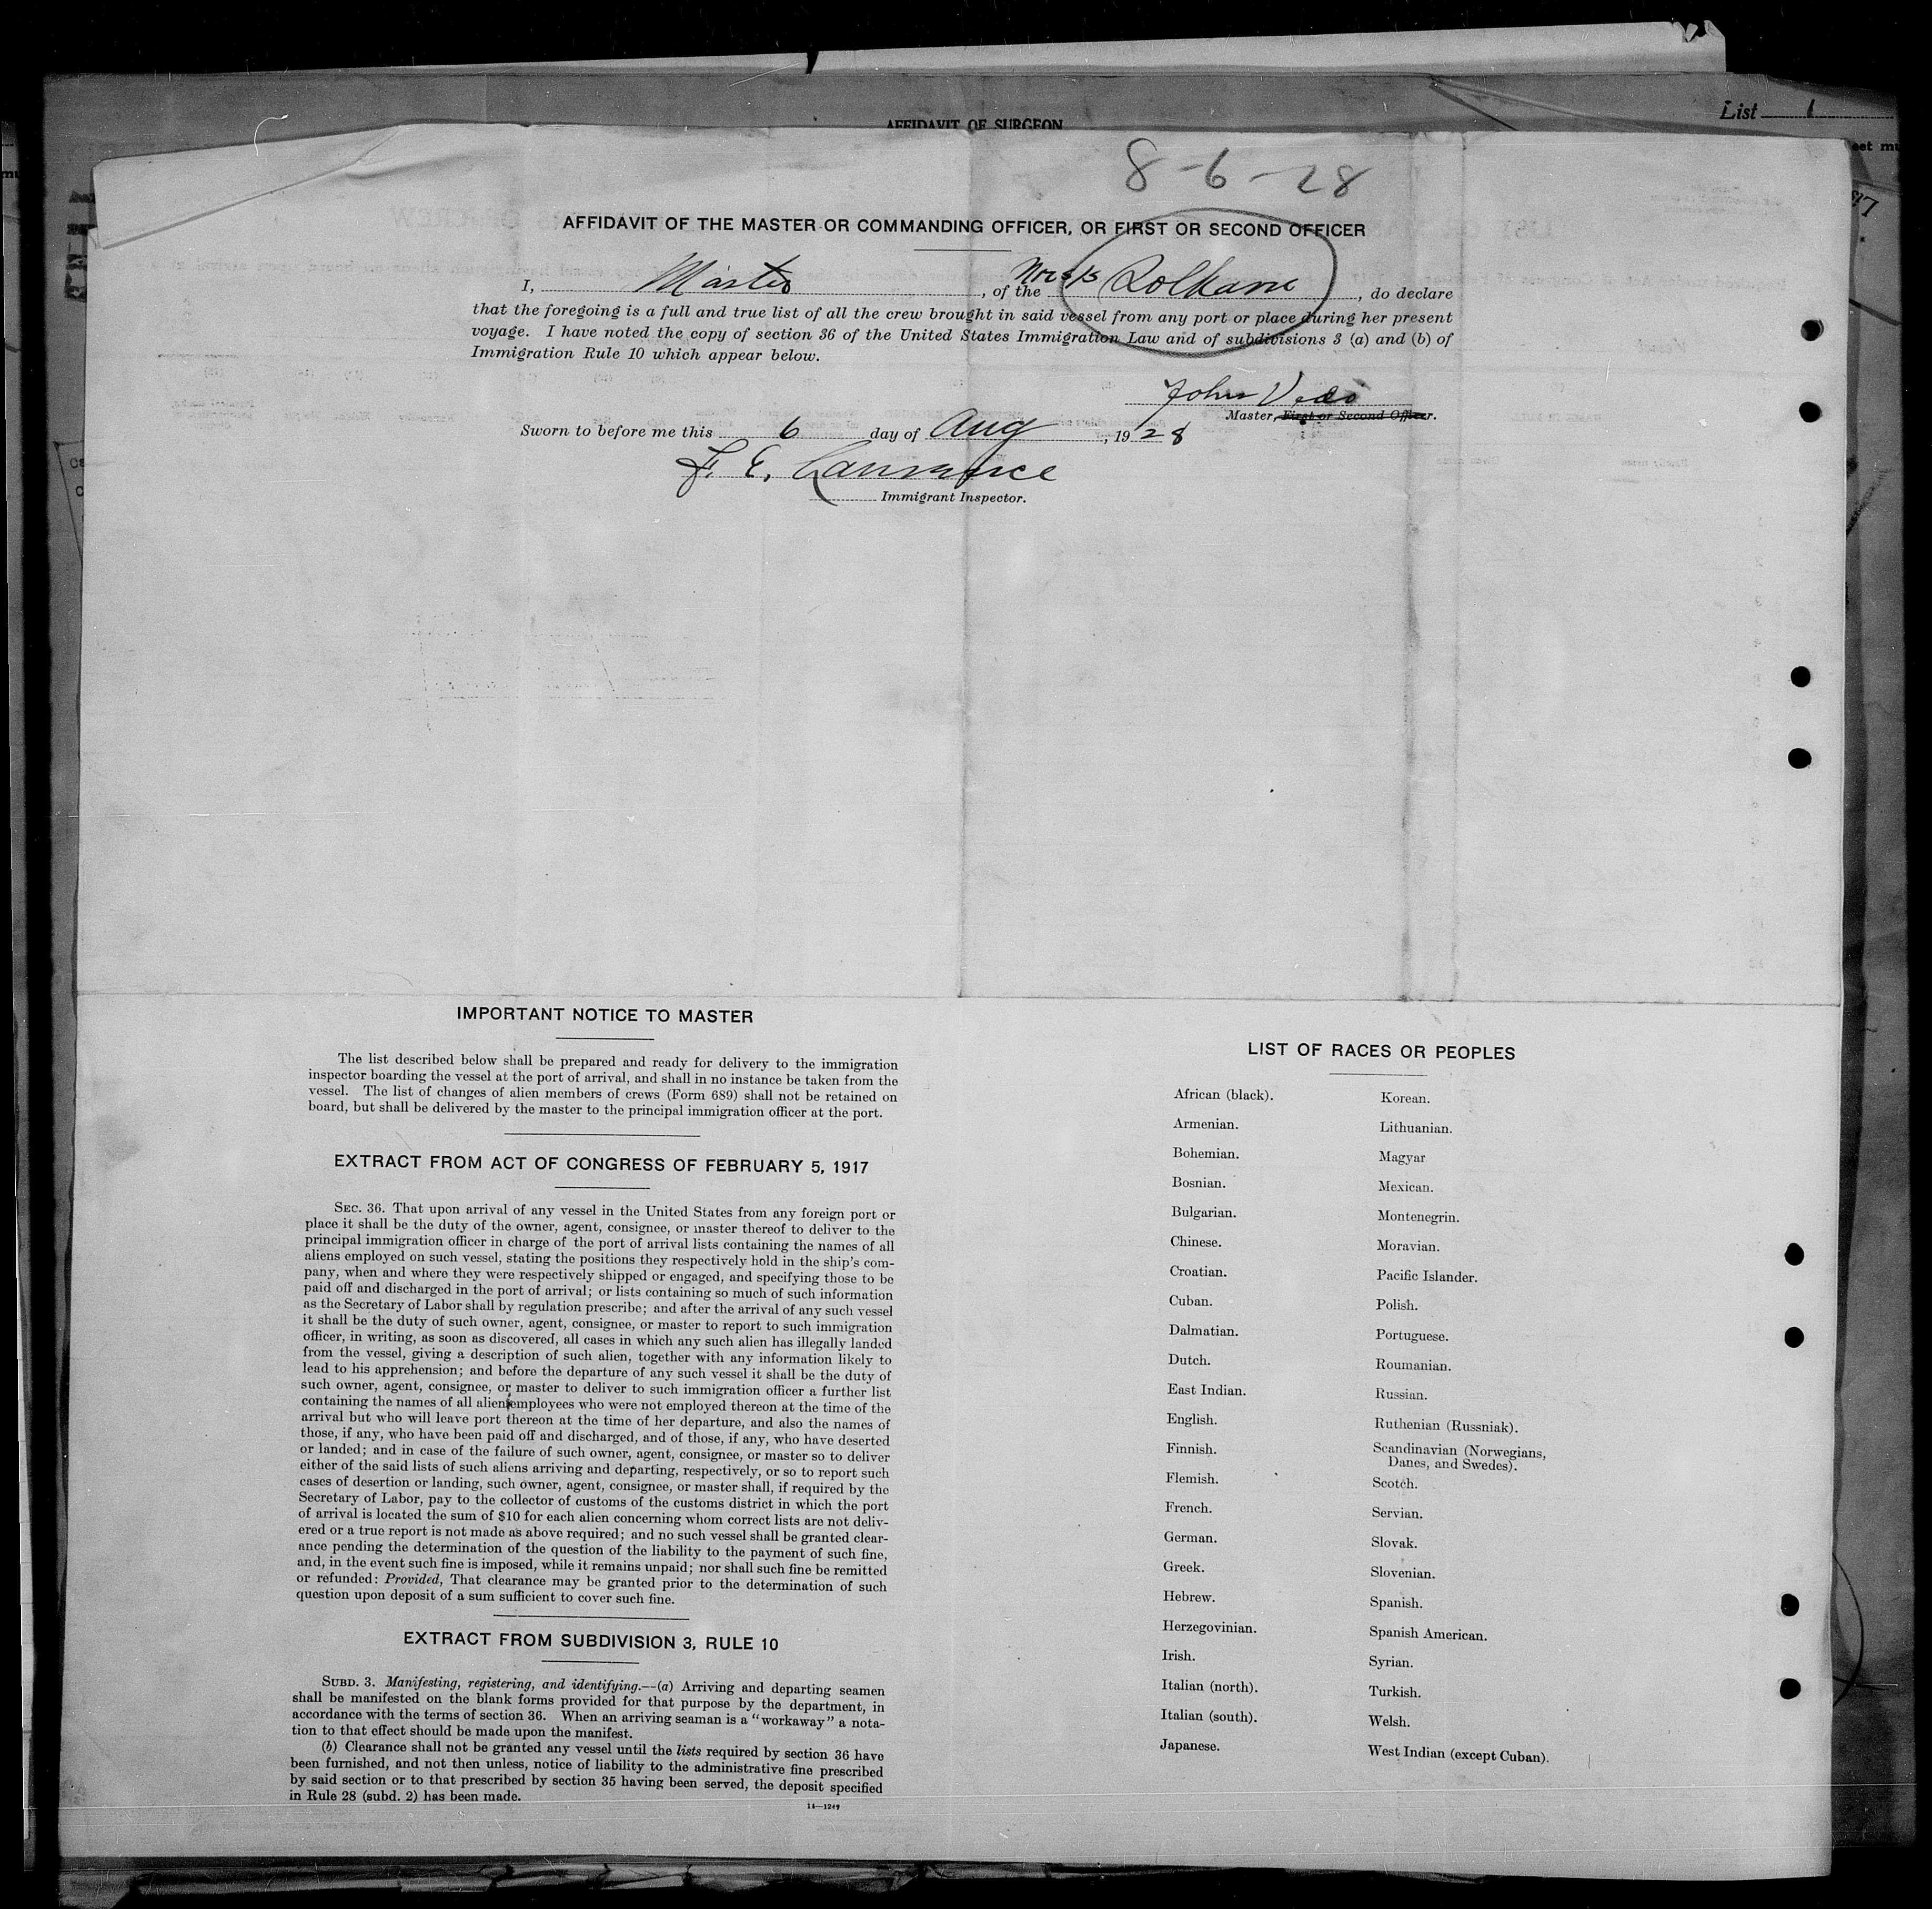 List 1
AFFIDAVIT OF SURGEON
8-6-28
AFFIDAVIT OF THE MASTER OR COMMANDING OFFICER, OR FIRST OR SECOND OFFICER
I, Master, of the, do declare
that the foregoing is a full and true list of all the crew brought in said vessel from any port or place during her present
voyage. I have noted the copy of section 36 of the United States Immigration Law and of subdivisions 3 (a) and (b) of
Immigration Rule 10 which appear below.
John
Master, First or Second Officer.
Sworn to before me this 6 day of Aug, 1928
F. E. Lawrence
Immigrant Inspector.
IMPORTANT NOTICE TO MASTER
The list described below shall be prepared and ready for delivery to the immigration
inspector boarding the vessel at the port of arrival, and shall in no instance be taken from the
vessel. The list of changes of alien members of crews (Form 689) shall not be retained on
board, but shall be delivered by the master to the principal immigration officer at the port.
EXTRACT FROM ACT OF CONGRESS OF FEBRUARY 5, 1917
SEC. 36. That upon arrival of any vessel in the United States from any foreign port or
place it shall be the duty of the owner, agent, consignee, or master thereof to deliver to the
principal immigration officer in charge of the port of arrival lists containing the names of all
aliens employed on such vessel, stating the positions they respectively hold in the ship's com-
pany, when and where they were respectively shipped or engaged, and specifying those to be
paid off and discharged in the port of arrival; or lists containing so much of such information
as the Secretary of Labor shall by regulation prescribe; and after the arrival of any such vessel
it shall be the duty of such owner, agent, consignee, or master to report to such immigration
officer, in writing, as soon as discovered, all cases in which any such alien has illegally landed
from the vessel, giving a description of such alien, together with any information likely to
lead to his apprehension; and before the departure of any such vessel it shall be the duty of
such owner, agent, consignee, or master to deliver to such immigration officer a further list
containing the names of all alien employees who were not employed thereon at the time of the
arrival but who will leave port thereon at the time of her departure, and also the names of
those, if any, who have been paid off and discharged, and of those, if any, who have deserted
or landed; and in case of the failure of such owner, agent, consignee, or master so to deliver
either of the said lists of such aliens arriving and departing, respectively, or so to report such
cases of desertion or landing, such owner, agent, consignee, or master shall, if required by the
Secretary of Labor, pay to the collector of customs of the customs district in which the port
of arrival is located the sum of $10 for each alien concerning whom correct lists are not deliv-
ered or a true report is not made as above required; and no such vessel shall be granted clear-
ance pending the determination of the question of the liability to the payment of such fine,
and, in the event such fine is imposed, while it remains unpaid; nor shall such fine be remitted
or refunded: Provided, That clearance may be granted prior to the determination of such
question upon deposit of a sum sufficient to cover such fine.
EXTRACT FROM SUBDIVISION 3, RULE 10
SUBD. 3. Manifesting, registering, and identifying.--(a) Arriving and departing seamen
shall be manifested on the blank forms provided for that purpose by the department, in
accordance with the terms of section 36. When an arriving seaman is a "workaway" a nota-
tion to that effect should be made upon the manifest.
(b) Clearance shall not be granted any vessel until the lists required by section 36 have
been furnished, and not then unless, notice of liability to the administrative fine prescribed
by said section or to that prescribed by section 35 having been served, the deposit specified
in Rule 28 (subd. 2) has been made.
14—1249
LIST OF RACES OR PEOPLES
African (black).
Armenian.
Bohemian.
Bosnian.
Bulgarian.
Chinese.
Croatian.
Cuban.
Dalmatian.
Dutch.
East Indian.
English.
Finnish.
Flemish.
French.
German.
Greek.
Hebrew.
Herzegovinian.
Irish.
Italian (north).
Italian (south).
Japanese.
Korean.
Lithuanian.
Magyar
Mexican.
Montenegrin.
Moravian.
Pacific Islander.
Polish.
Portuguese.
Roumanian.
Russian.
Ruthenian (Russniak).
Scandinavian (Norwegians,
Danes, and Swedes).
Scotch.
Servian.
Slovak.
Slovenian.
Spanish.
Spanish American.
Syrian.
Turkish.
Welsh.
West Indian (except Cuban).